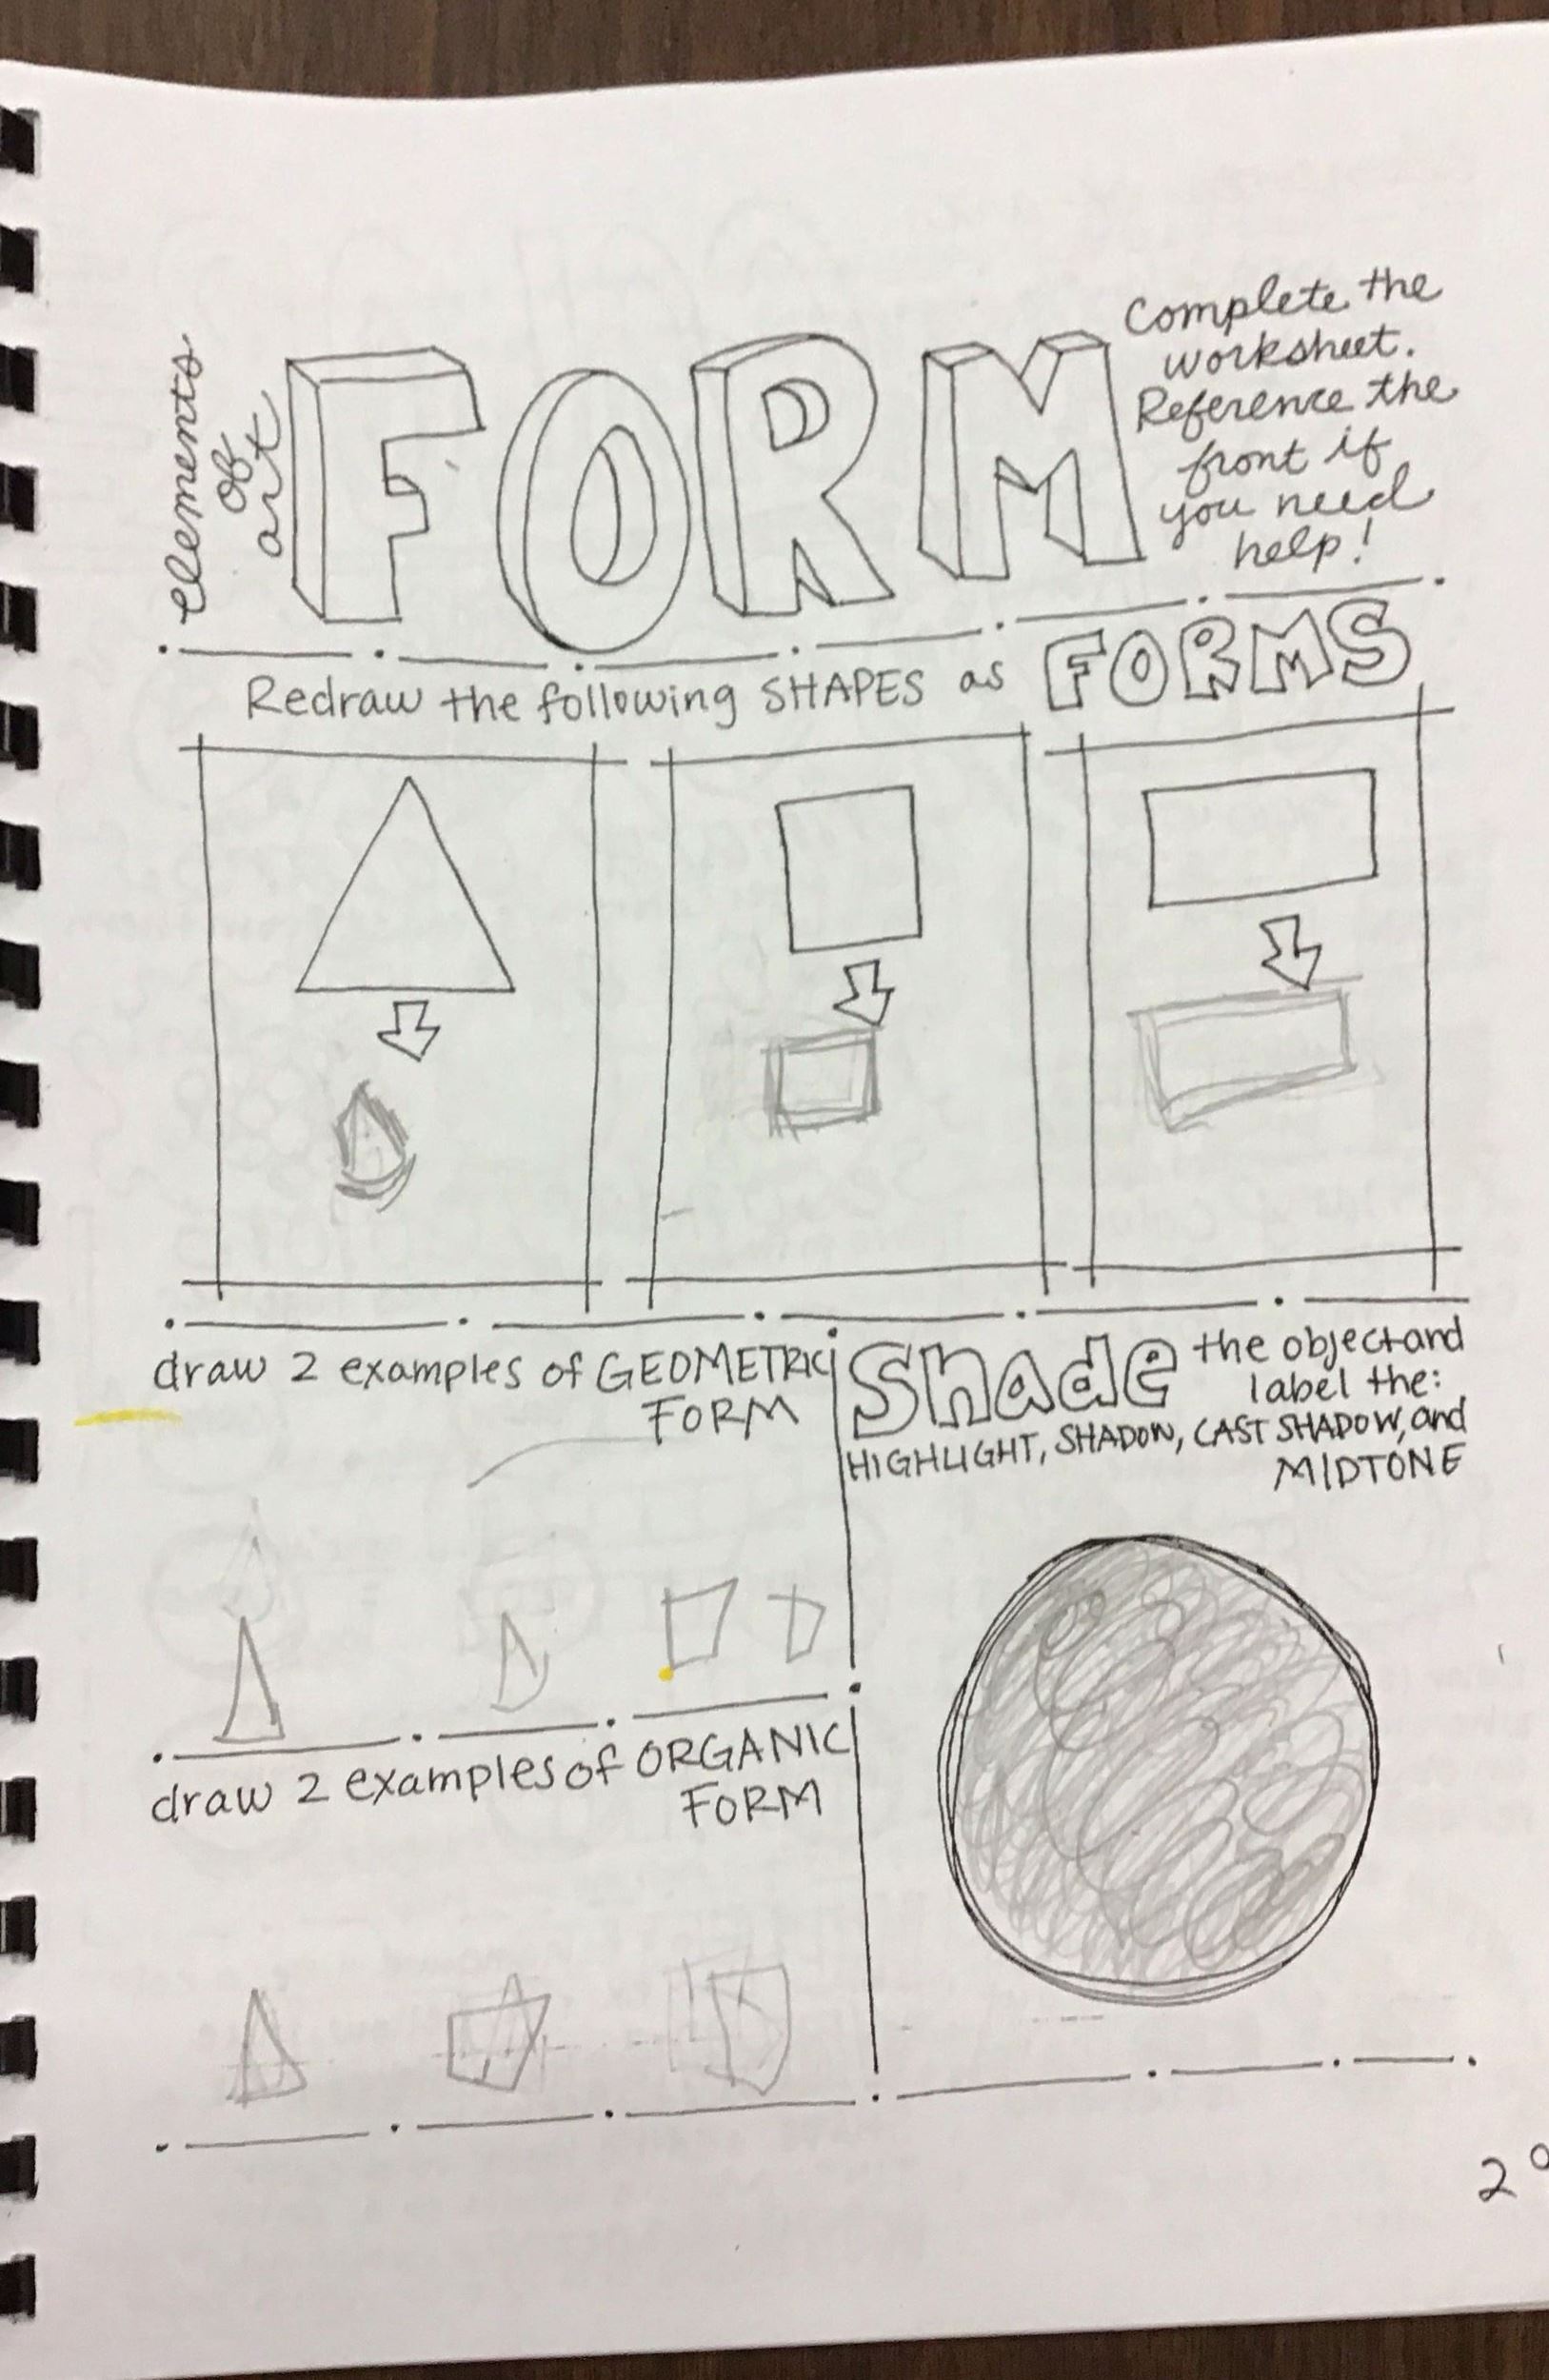 elements
of
art
FORM
Complete the
worksheet.
Reference the
front if
you need
help!
Redraw the following SHAPES as FORMS
draw 2 examples of GEOMETRIC
FORM
Shade the object and
label the:
HIGHLIGHT, SHADOW, CAST SHADOW, and
MIDTONE
draw 2 examples of ORGANIC
FORM